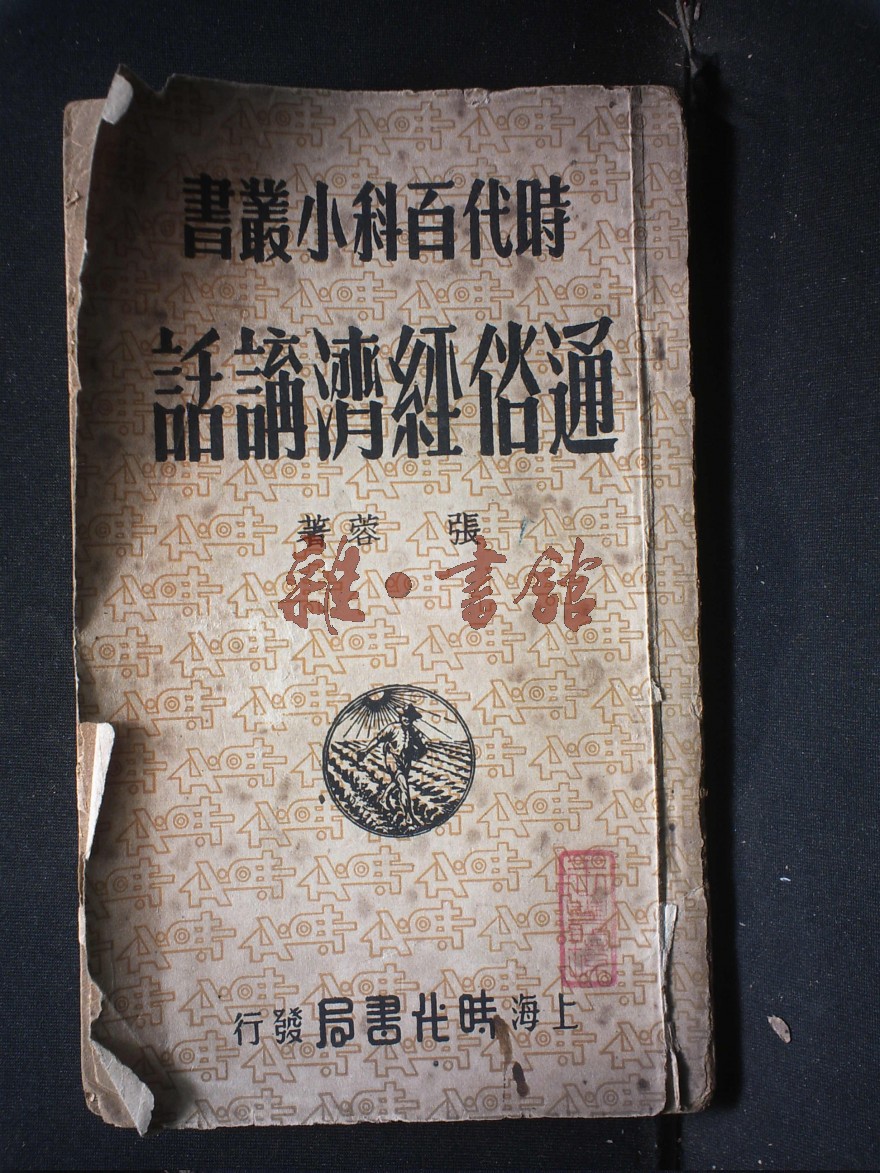 時代百科小叢書
通俗經濟講話
張蓉著
雜·書館
上海時代書局發行